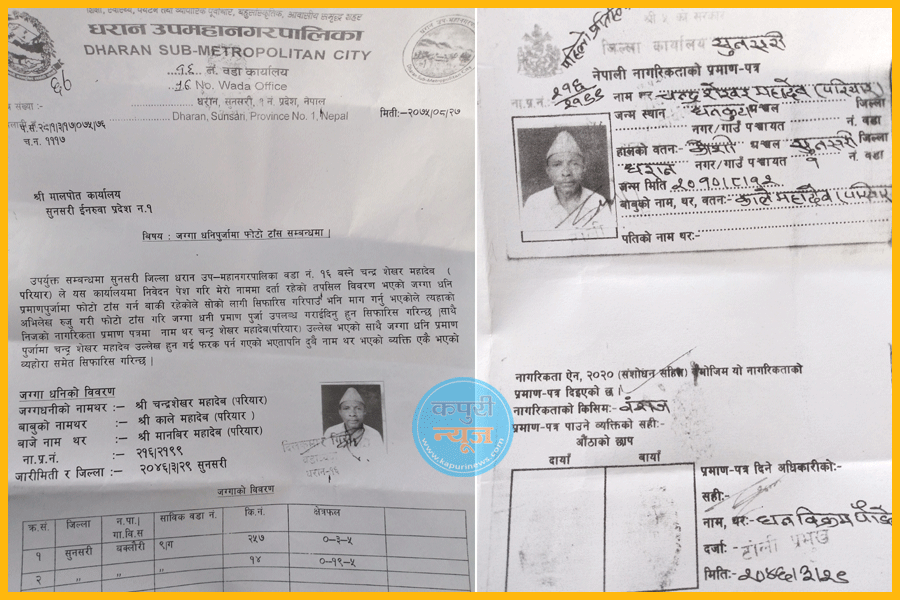 शिक्षा, स्वास्थ्य, पर्यटन तथा व्यापारिक पूर्वाधार, बहुसांस्कृतिक, आवासीय समृद्ध शहर
धरान उपमहानगरपालिका
DHARAN SUB-METROPOLITAN CITY
१६ नं. वडा कार्यालय
16 No. Wada Office
धरान, सुनसरी, १ नं. प्रदेश, नेपाल
Dharan, Sunsari, Province No. 1, Nepal
संख्या :-
मिती:-२०७५/०८/२७
प.सं.२८/१/३/१७/०७५/७६
च.न. १११७
श्री मालपोत कार्यालय
सुनसरी ईनरुवा प्रदेश नं.१
विषय : जग्गा धनिपुर्जामा फोटो टाँस सम्बन्धमा |
उपर्युक्त सम्बन्धमा सुनसरी जिल्ला धरान उप–महानगरपालिका वडा नं. १६ बस्ने चन्द्र शेखर महादेव (
परियार) ले यस कार्यालयमा निवेदन पेश गरि मेरो नाममा दर्ता रहेको तपसिल विवरण भएको जग्गा धनि
प्रमाणपुर्जामा फोटो टाँस गर्न बाकी रहेकोले सोको लागी सिफारिस गरिपाउँ भनि माग गर्नु भएकोले त्यहाको
अभिलेख रुजु गरी फोटो टाँस गरि जग्गा धनी प्रमाण पुर्जा उपलब्ध गराईदिनु हुन सिफारिस गरिन्छ |साथै
निजको नागरिकता प्रमाण पत्रमा नाम थर चन्द्र शेखर महादेव(परियार) उल्लेख भएको साथै जग्गा धनि प्रमाण
पुर्जामा चन्द्र शेखर महादेव उल्लेख हुन गई फरक पर्न गएको भएतापनि दुबै नाम थर भएको व्यक्ति एकै भएको
व्यहोरा समेत सिफारिस गरिन्छ |
जग्गा धनिको विवरण
जग्गधनीको नामथर :— श्री चन्द्रशेखर महादेव (परियार)
बाबुको नामथर :— श्री काले महादेव (परियार )
बाजे नाम थर :— श्री मानबिर महादेव (परियार)
ना.प्र.नं. :— २१६/२१९९
जारीमिती र जिल्ला :— २०४६/३/२९ सुनसरी
धरान-१६
जग्गाको विवरण
क्र.सं. जिल्ला न.पा.| गा.वि.स साविक वडा नं. कि.नं. क्षेत्रफल
१ सुनसरी घक्लौरी ९/ग २५७ ०-३-५
२ " " १४ ०-१९-५
कपुरी
न्यूज
www.kapurinews.com
पहिलो प्रति
श्री ५ को सरकार
जिल्ला कार्यालय सुनसरी
नेपाली नागरिकताको प्रमाण-पत्र
ना.प्र.नं. २१६/२१९९
नाम थर चन्द्र शेखर महादेव (परियार)
जन्म स्थान धनकुटा अञ्चल जिल्ला
नगर/गाउँ पञ्चायत नं. वडा
हालको वतन:- कोशी अञ्चल सुनसरी जिल्ला
धरान नगर/गाउँ पञ्चायत नं. वडा
जन्म मिति २०१०/८/१२
बाबुको नाम, थर, वतन: काले महादेव (परियार)
पतिको नाम थर:-
नागरिकता ऐन, २०२० (संशोधन सहित) बमोजिम यो नागरिकताको
प्रमाण-पत्र दिइएको छ।
नागरिकताको किसिम:- वंशज
प्रमाण-पत्र पाउने व्यक्तिको सही:-
बौंठाको छाप
दायाँ बायाँ
प्रमाण-पत्र दिने अधिकारीको:-
सही:-
नाम, थर:- धन विक्रम पौडेल
दर्जा:- टोली प्रमुख
मिति:- २०४६/३/२९